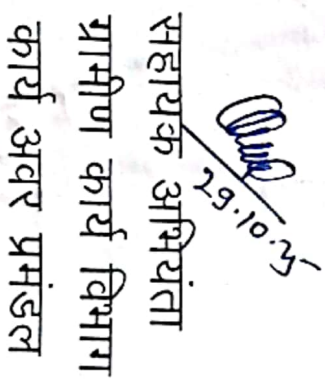 29.10.25
सहायक अभियंता
ग्रामीण कार्य विभाग
कार्य अवर प्रमंडल